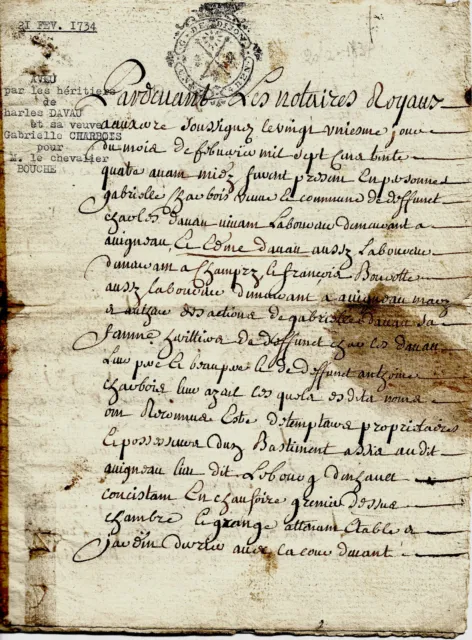 21 FEV. 1734
G. DE DIJON
AVEU
par les héritiers
de
harles DAVAU
et sa veuve
Gabrielle CHARBOIS
pour
M. le chevalier
BOUCHE
Pardevant Les notaires Royaux
a auxere Soussignez le vingt uniesme jour
du mois de febvrier mil sept Cent trente
quatre avant midy furent presens En personnes
gabrielle Charbois veuve commune de deffunct
charles davau vivant Laboureur demeurant a
auigneau, Edme davau aussy Laboureur
demeurant a Champrz francois
aussy Laboureur demeurant a auigneau mary
actions de gabrielle davau sa
femme de deffunct charles davau
leur pere beaupere de deffunct anthoine
charbois leur les quels esdits noms
ont Reconnus Estre detempteurs proprietaires
possesseurs d'un Bastiment assis audit
auigneau lieu dit Le bourg
concistant En chaufoire grenier dessus
chambre grange attenant Etable
jardin derrier avec La cour devant